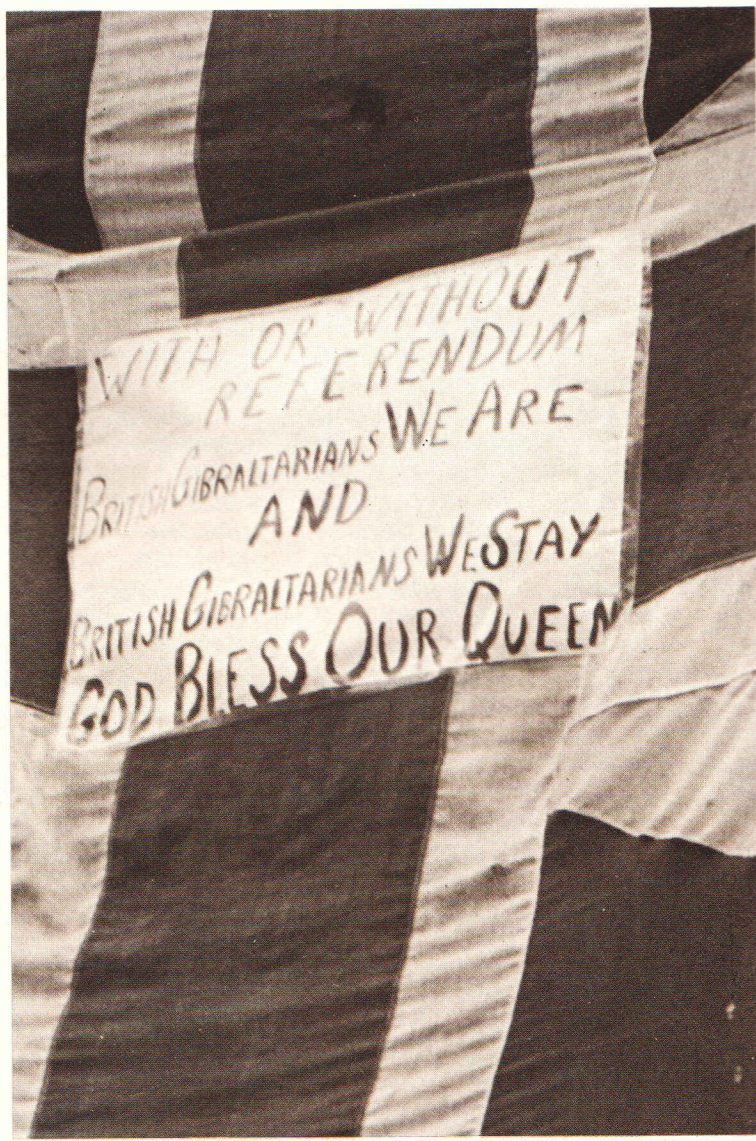 WITH OR WITHOUT
REFERENDUM
BRITISH GIBRALTARIANS WE ARE
AND
BRITISH GIBRALTARIANS WE STAY
GOD BLESS OUR QUEEN